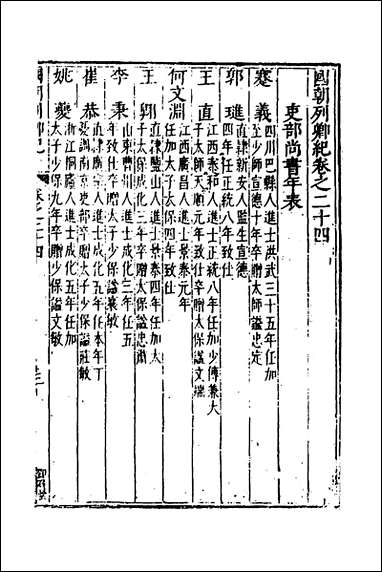 國朝列卿紀卷之二十四
吏部尚書年表
蹇義
四川巴縣人進士洪武三十五年任加
至少師宣德十年卒贈太師謚忠定
郭璡
直隸新安人監生宣德
四年任正統八年致仕
王直
江西泰和人進士正統八年任加少傅兼太
子太師天順元年致仕卒贈太保謚文端
何文淵
江西廣昌人進士景泰元年
任加太子太保四年致仕
王翱
直隸鹽山人進士景泰四年任加太
子太保成化三年卒贈太保謚忠肅
李秉
山東曹州人進士成化三年任五
年致仕卒贈太子少保謚襄敏
崔恭
直隸廣宗人進士成化五年任本年丁
憂調南京吏部卒贈太子少保謚莊敏
姚夔
浙江桐廬人進士成化五年任加
太子少保九年卒贈少保謚文敏